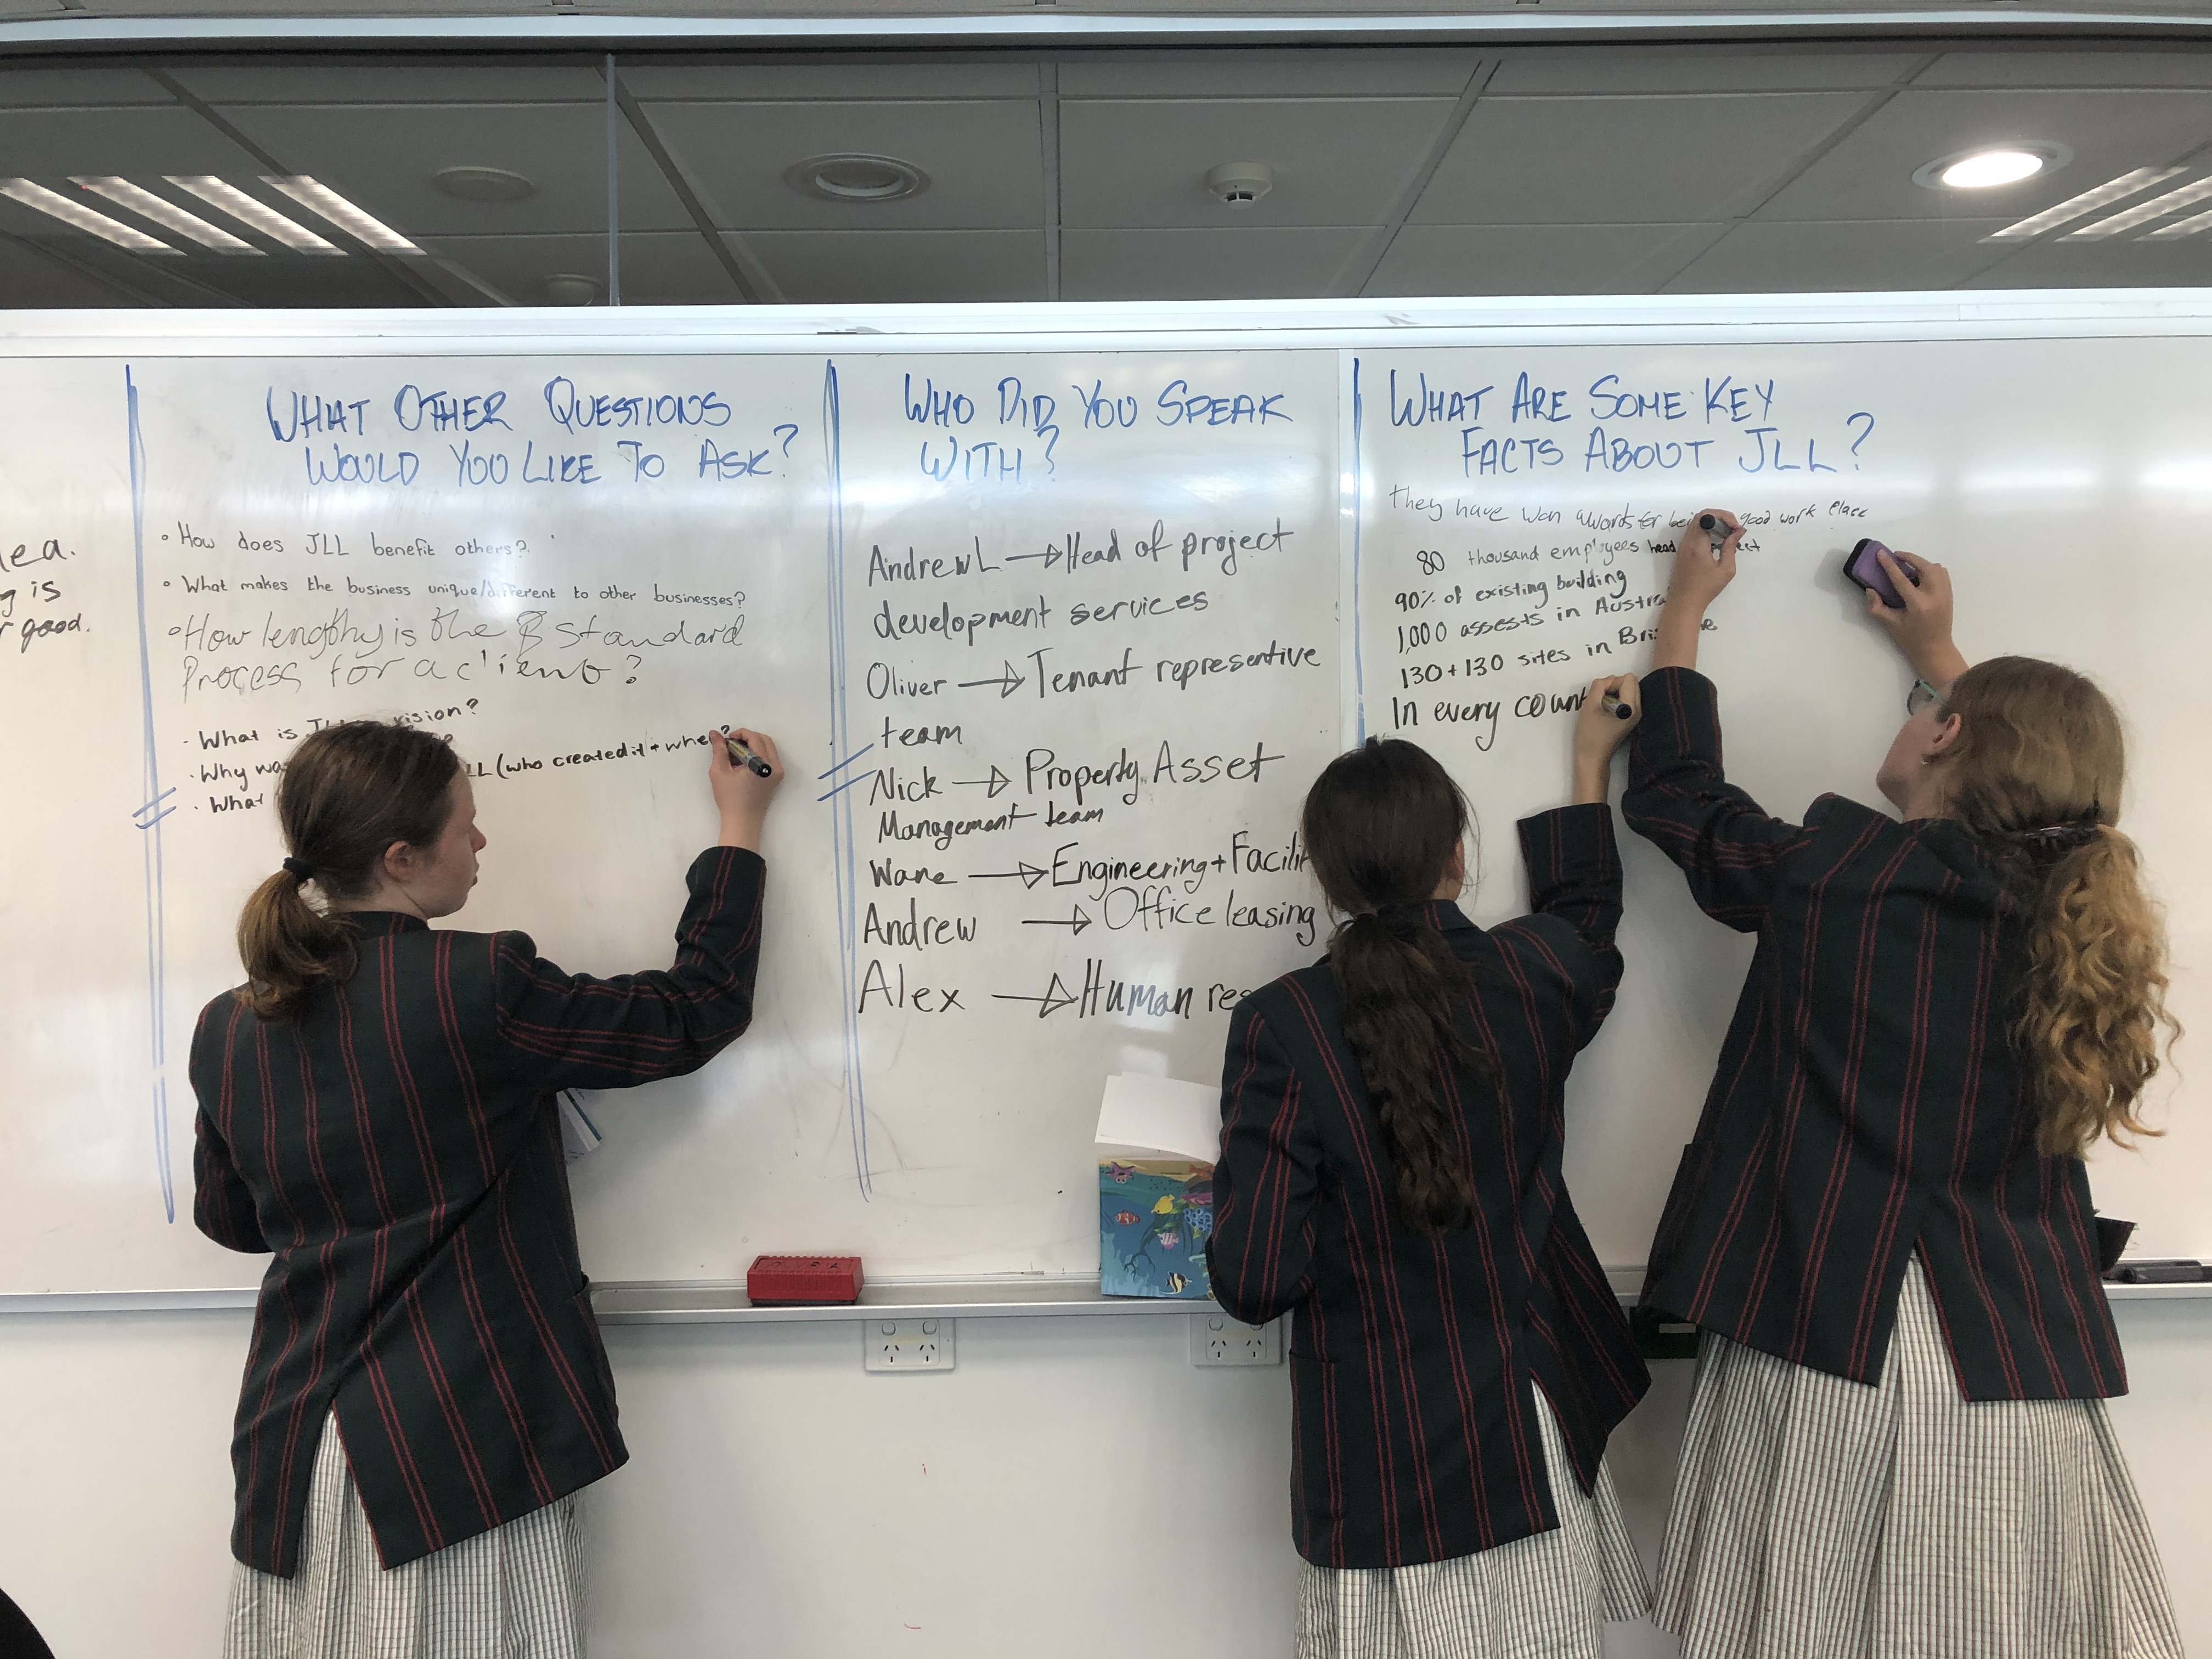 lea.
g is
r good.
WHAT OTHER QUESTIONS
WOULD YOU LIKE TO ASK?
• How does JLL benefit others?
• What makes the business unique/different to other businesses?
• How lengthy is the standard
Process for a client?
• What is vision?
• Why LL (who created it + when?
• What
WHO DID YOU SPEAK
WITH?
Andrew L → Head of project
development services
Oliver → Tenant representive
team
Nick → Property Asset
Management team
Wane → Engineering + Facilit
Andrew → Office leasing
Alex → Human res
WHAT ARE SOME KEY
FACTS ABOUT JLL?
they have won awards for good work place
80 thousand employees head
90% of existing building
1,000 assests in Austra
130 + 130 sites in Bris
In every count